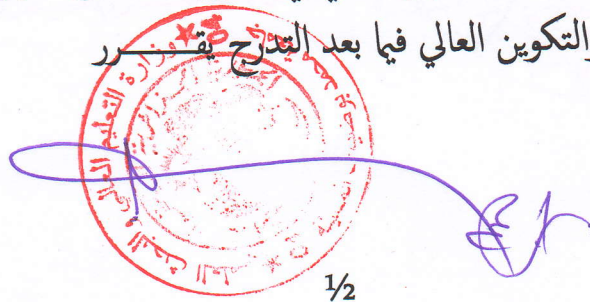 والتكوين العالي فيما بعد التدرج يقـــــرر
وزارة التعليم العالي و البحث العلمي
1/2